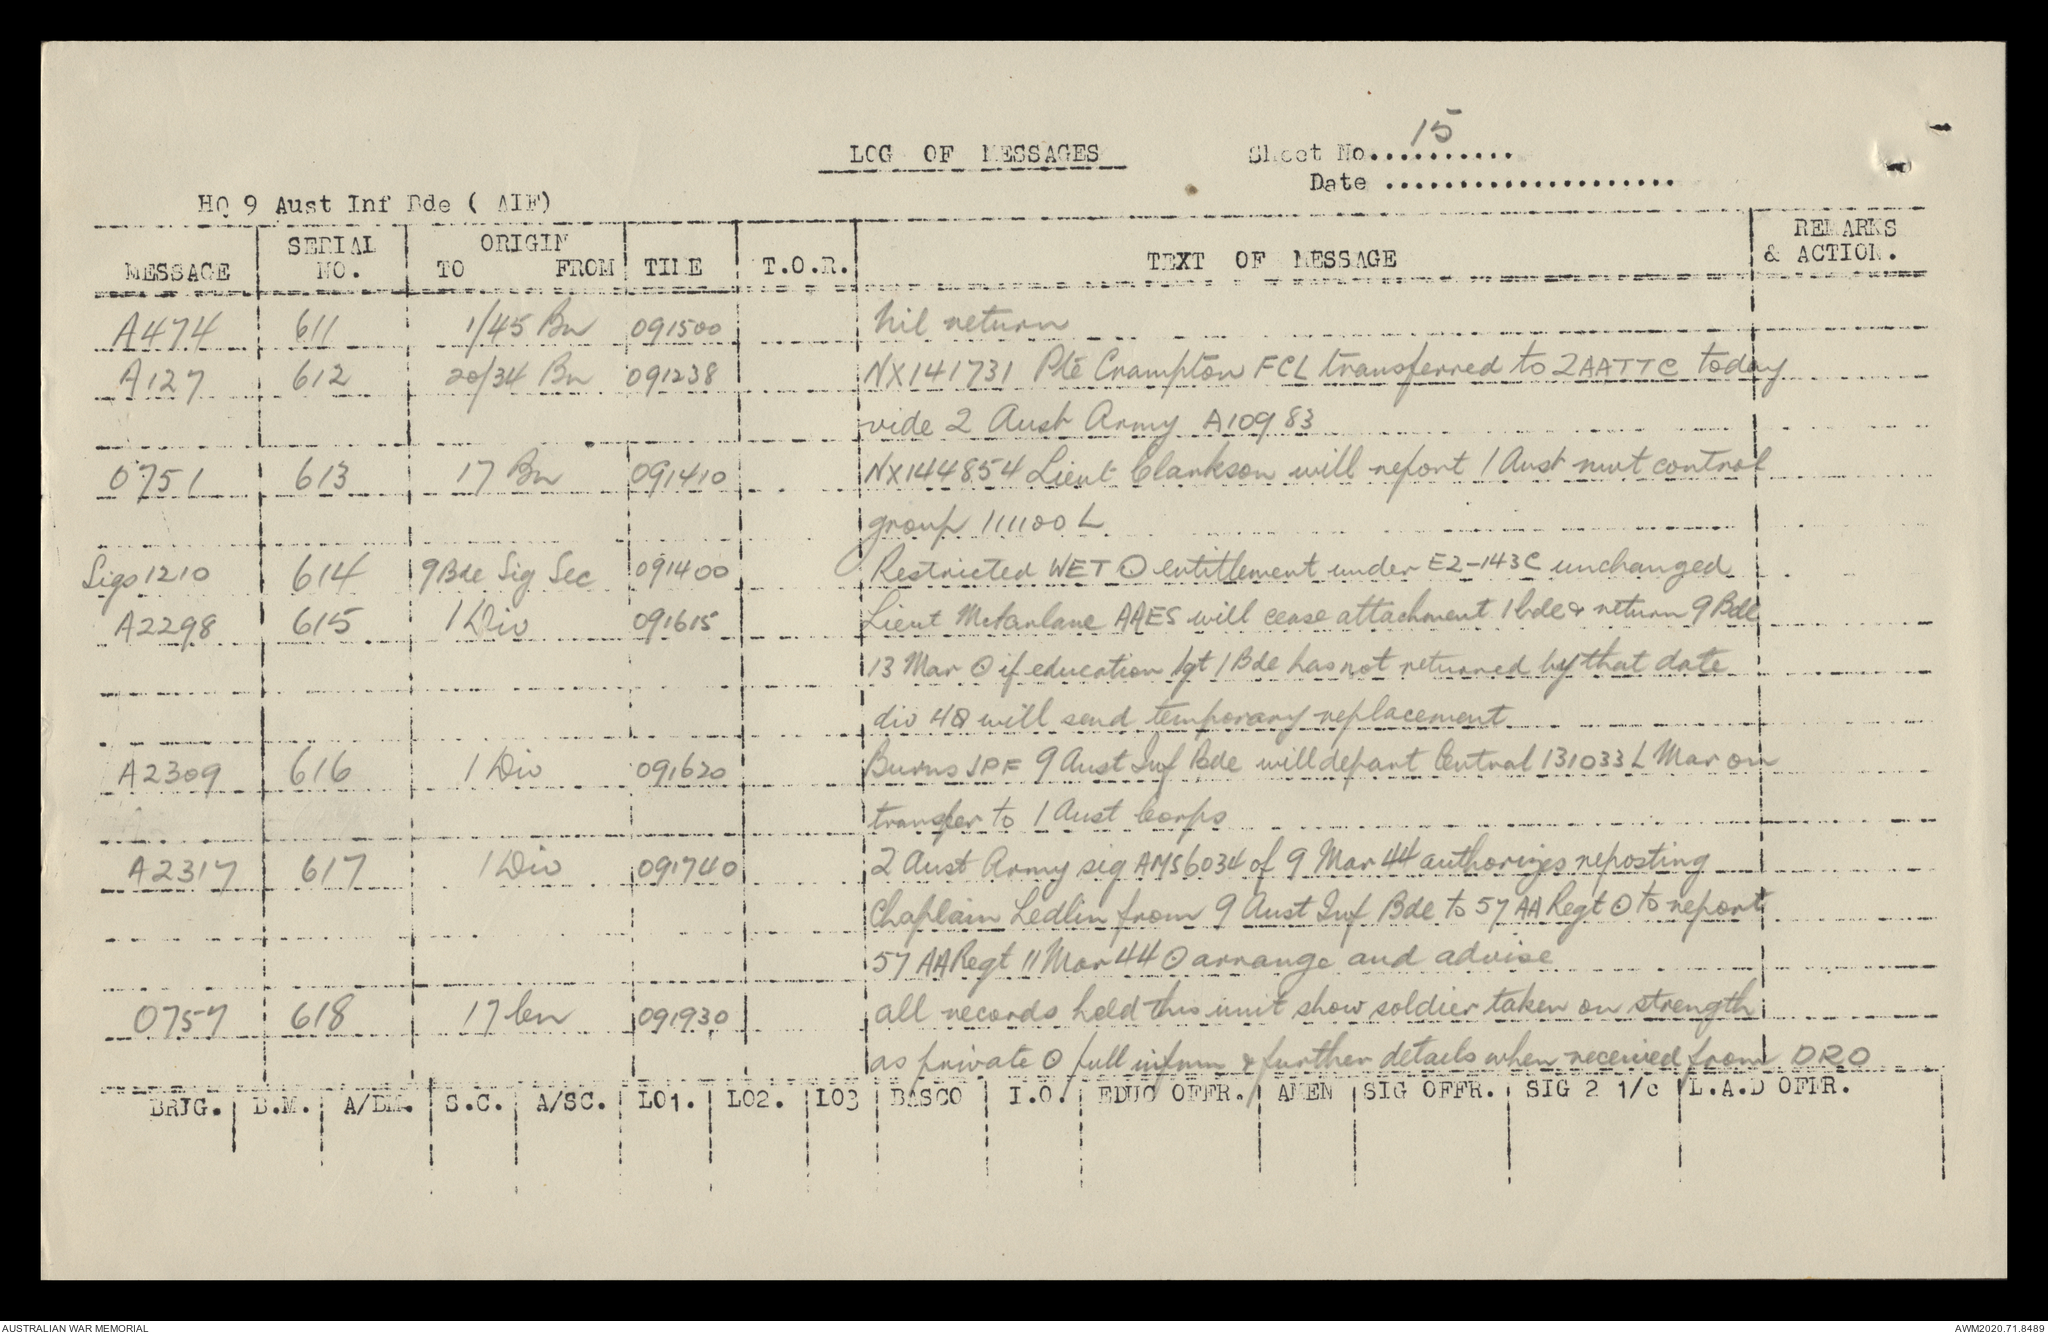 LOG OF MESSAGES
Sheet No. 15
Date
HQ 9 Aust Inf Bde ( AIF)
MESSAGE SERIAL NO. ORIGIN TO FROM TIME T.O.R. TEXT OF MESSAGE REMARKS & ACTION.
A474 611 1/45 Bn 091500 Nil return
A127 612 20/34 Bn 091238 NX141731 Pte Crampton FCL transferred to 2AATTC today
vide 2 Aust Army A10983
O751 613 17 Bn 091410 NX144854 Lieut Clarkson will report 1 Aust mvt control
group 111100 L
Sigs 1210 614 9 Bde Sig Sec 091400 Restricted WET ⊙ entitlement under E2-143C unchanged
A2298 615 1 Div 091615 Lieut McFarlane AAES will cease attachment 1 bde & return 9 Bde
13 Mar ⊙ if education Sgt 1 Bde has not returned by that date
div HQ will send temporary replacement
A2309 616 1 Div 091620 Burns JPF 9 Aust Inf Bde will depart Central 131033 L Mar on
transfer to 1 Aust Corps
A2317 617 1 Div 091740 2 Aust Army sig AMS6034 of 9 Mar 44 authorizes reposting
Chaplain Ledlin from 9 Aust Inf Bde to 57 AA Regt ⊙ to report
57 AA Regt 11 Mar 44 ⊙ arrange and advise
O757 618 17 bn 091930 all records held this unit show soldier taken on strength
as private ⊙ full inform & further details when received from DRO
BRIG. B.M. A/BM. S.C. A/SC. LO1. LO2. LO3 BASCO I.O. EDUC OFFR. AMEN SIG OFFR. SIG 2 I/C L.A.D OFFR.
AUSTRALIAN WAR MEMORIAL
AWM2020.71.8489